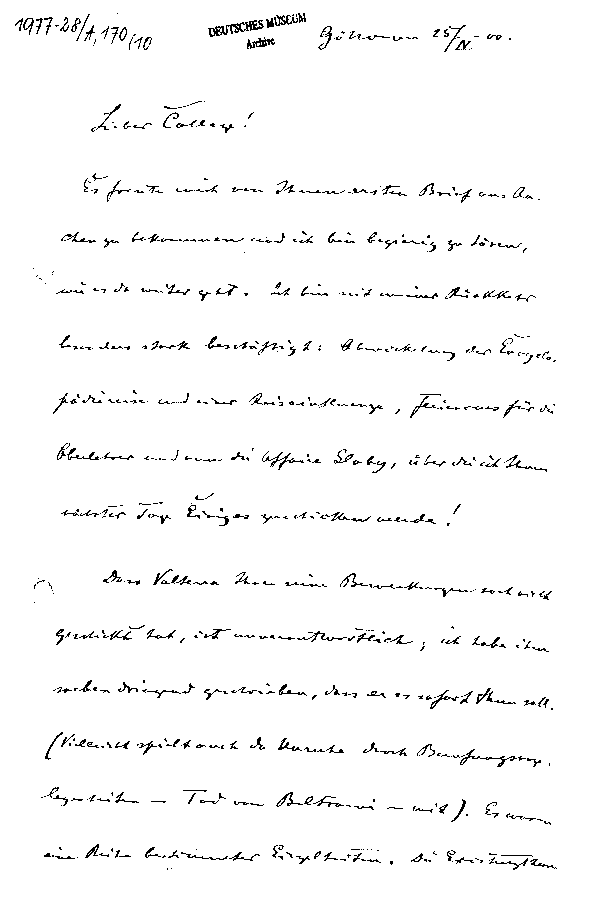 1977-28/A,170/10
DEUTSCHES MUSEUM
Archive
Göttingen 25/IV-00.
Lieber College!
Es freute mich von Ihnen ersten Brief aus Aa-
chen zu bekommen und ich bin begierig zu hören,
wie es da weiter geht. Ich bin seit meiner Rückkehr
besonders stark beschäftigt: Abwickelung der Encyclo-
pädiereise und einer, Feriencurs für die
Oberlehrer und nun die Affaire Slaby, über die ich Ihnen
nächster Tage Einiges zuschicken werde!
Dass Volterra Ihnen meine Bemerkungen noch nicht
geschickt hat, ist unverantwortlich; ich habe ihm
soeben dringend geschrieben, dass er es sofort thun soll.
(Vielleicht spielt auch die Unruhe durch Berufungsange-
legenheiten – Tod von Beltrami – mit). Es waren
eine Reihe bestimmter Einzelheiten. Die